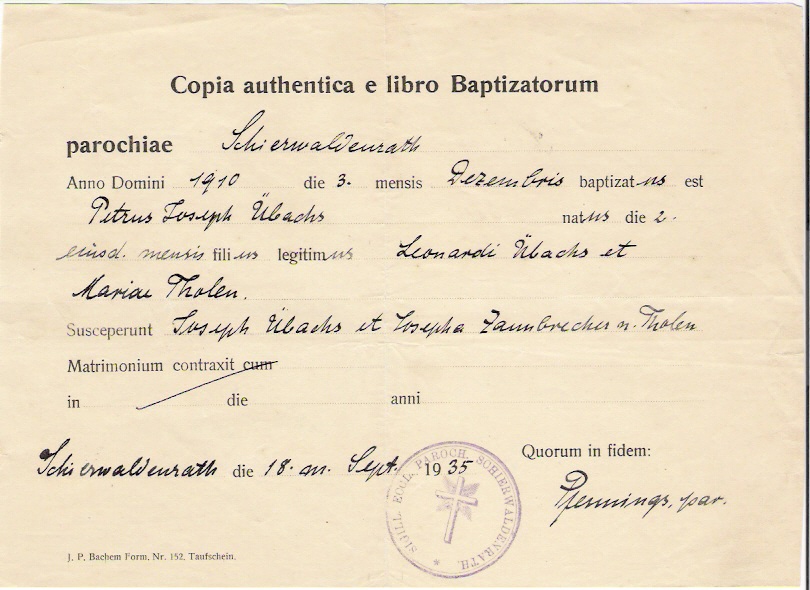 Copia authentica e libro Baptizatorum
parochiae Schierwaldenrath
Anno Domini 1910 die 3. mensis Dezembris baptizatus est
Petrus Joseph Übachs natus die 2.
eiusd. mensis filius legitimus Leonardi Übachs et
Mariae Tholen.
Susceperunt Joseph Übachs et Josepha Zaunbrecher n. Tholen
Matrimonium contraxit cum
in die anni
Schierwaldenrath die 18. m. Sept. 1935
Quorum in fidem:
Pfennings, par.
SIGILL. ECCL. PAROCH. SCHIERWALDENRATH.
J. P. Bachem Form. Nr. 152. Taufschein.